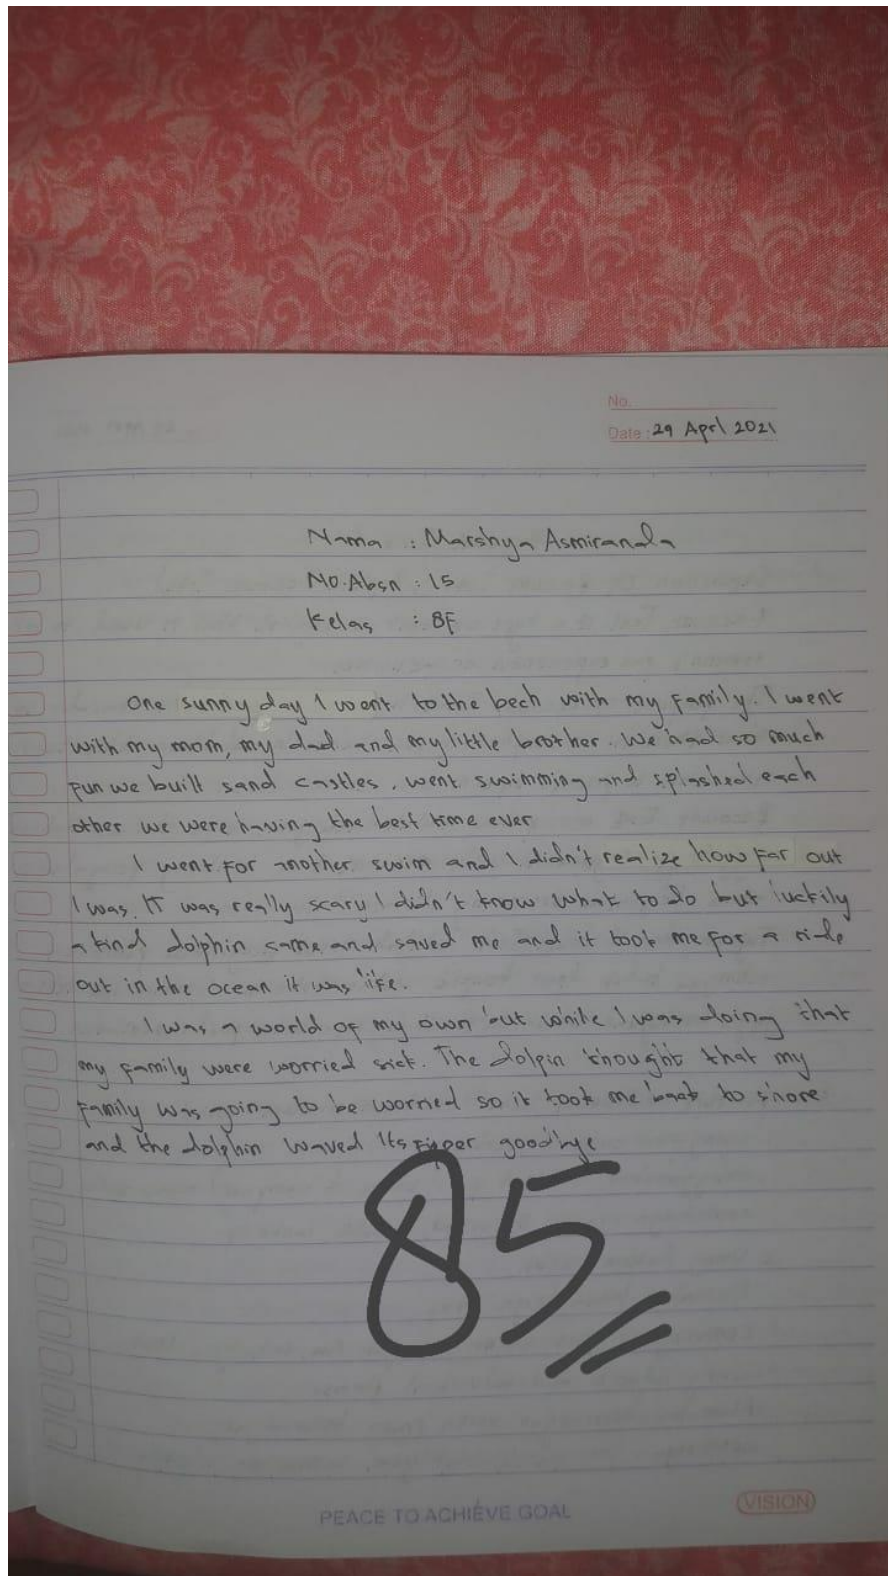 No.
Date : 29 Aprl 2021
Nama : Marshya Asmiranda
No.Absn : 15
Kelas : 8F
One sunny day I went to the bech with my family. I went
with my mom, my dad and my little brother. We had so much
fun we built sand castles, went swimming and splashed each
other we were having the best time ever
I went for another swim and I didn't realize how far out
I was. IT was really scary I didn't know what to do but luckily
a kind dolphin came and saved me and it took me for a ride
out in the ocean it was life.
I was a world of my own but while I was doing that
my family were worried sick. The dolpin thought that my
family was going to be worried so it took me back to shore
and the dolphin waved its goodbye
85
PEACE TO ACHIEVE GOAL
VISION